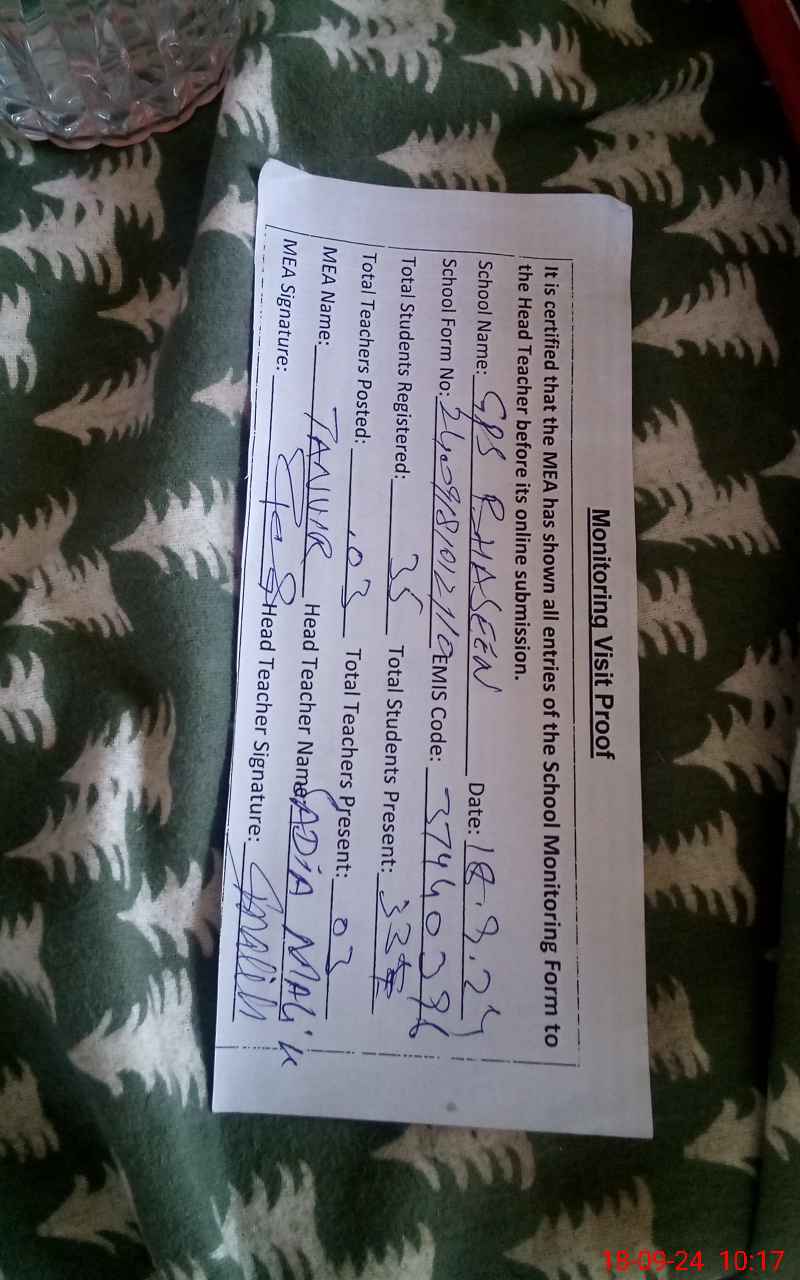 Monitoring Visit Proof
It is certified that the MEA has shown all entries of the School Monitoring Form to
the Head Teacher before its online submission.
School Name: GPS PHASEEN Date: 18.9.24
School Form No: 2409181012110 EMIS Code: 37440396
Total Students Registered: 35 Total Students Present: 33
Total Teachers Posted: 03 Total Teachers Present: 03
MEA Name: TANVIR Head Teacher Name: SADIA MALiK
MEA Signature: Head Teacher Signature: Smalik
18-09-24 10:17